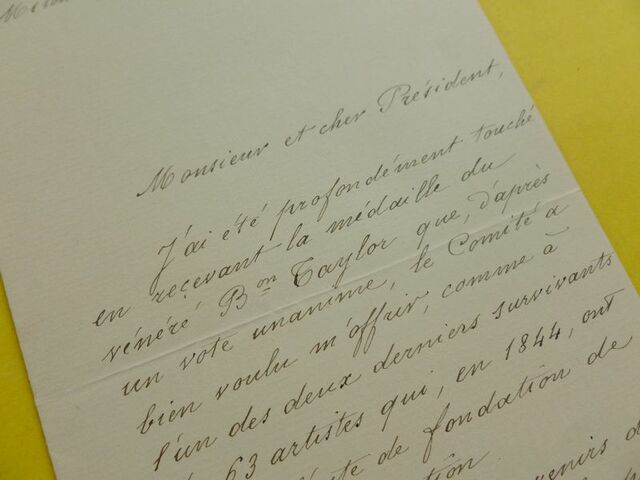 Monsieur et cher Président,
J'ai été profondément touché
en reçevant la médaille du
vénéré Bon Taylor que, d'après
un vote unanime, le Comité a
bien voulu m'offrir, comme à
l'un des deux derniers survivants
63 artistes qui, en 1844, ont
de fondation de